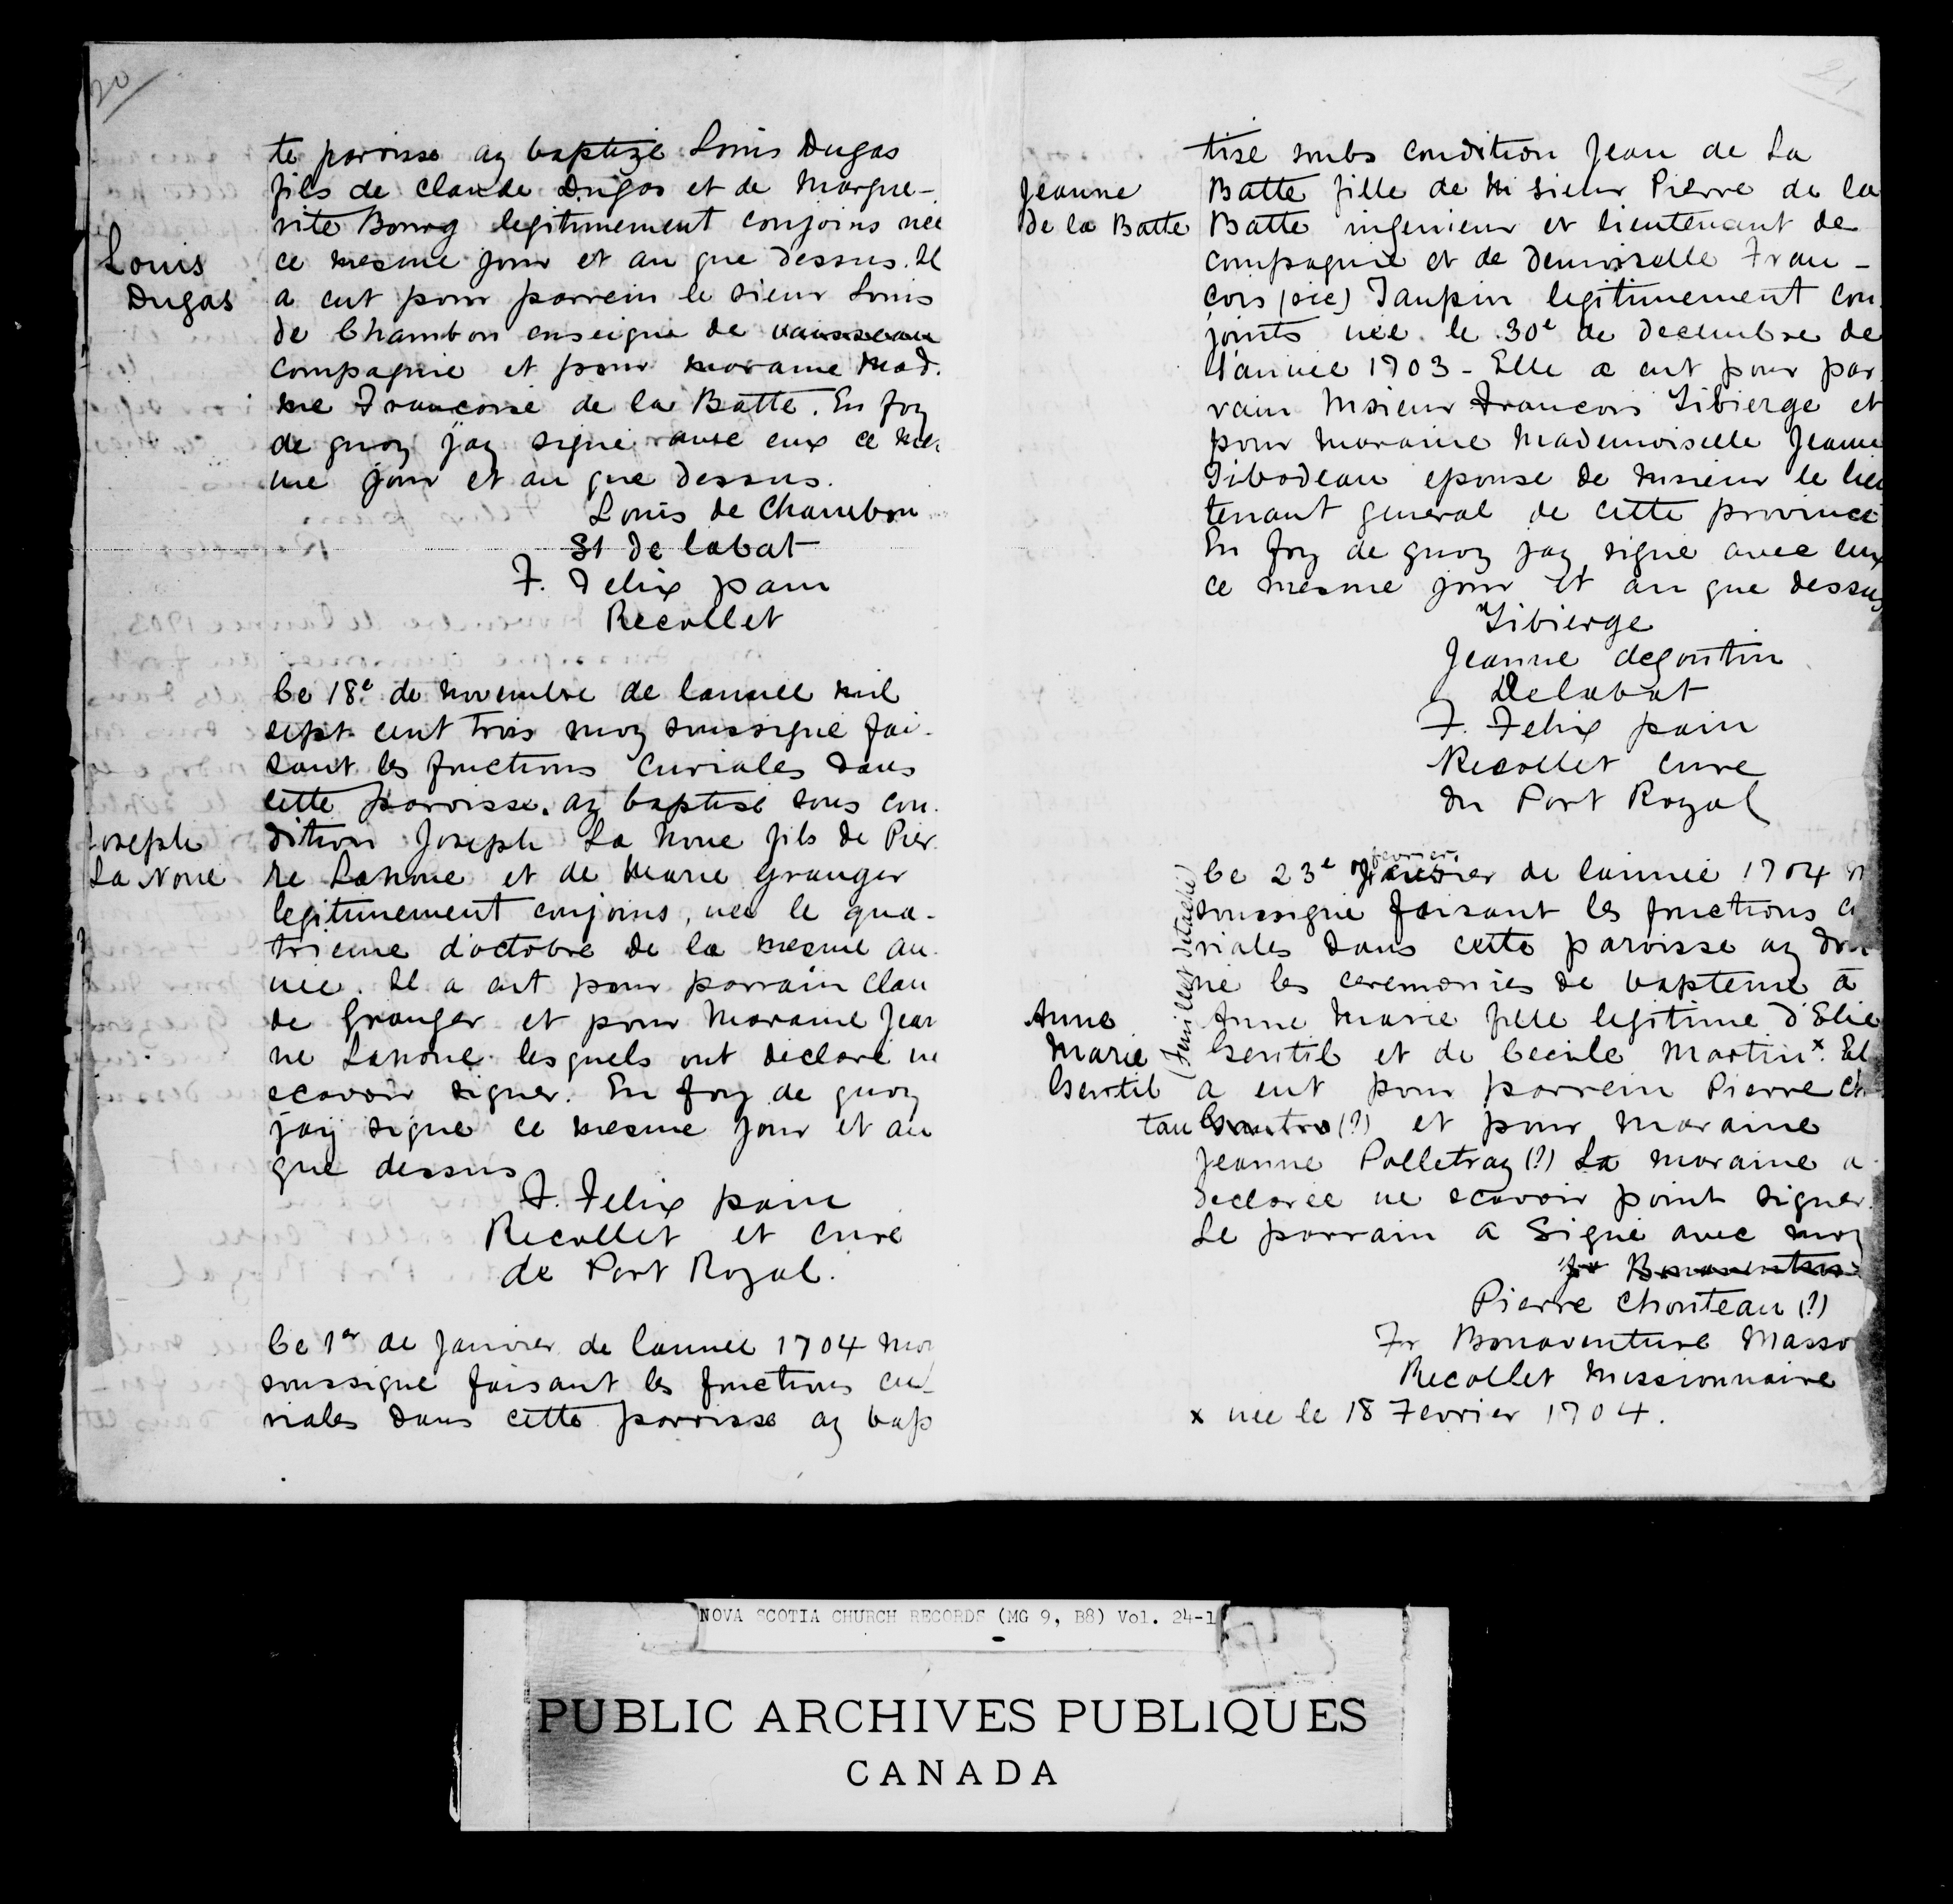 20
te paroisse ay baptize Louis Dugas
fils de Claude Dugas et de Margue-
rite Bourg legitimement conjoins née
Louis
Dugas
ce mesme jour et an que dessus. Il
a eut pour parrein le sieur Louis
de Chambon enseigne de vausseau
compagnie et pour maraine Mad.
me Francoise de la Batte. En foy
de quoy j'ay signé avec eux ce mes
me jour et an que dessus.
Louis de Chambon
St de labat
F. Felix pain
Recollet
Le 18e de novembre de lannee mil
sept cent trois moy soussigne fai-
sant les fonctions curiales dans
cette paroisse. ay baptisé sous con-
Joseph
La Noue
dition Joseph La Noue fils de Pier
re Lanoue et de Marie Granger
legitimement conjoins, nee le qua-
trieme d'octobre de la mesme an-
nee. Il a eut pour parrain Clau
de Granger et pour Maraine Jean
ne Lanoue lesquels ont declaré ne
scavoir signer. En foy de quoy
jay signe ce mesme jour et an
que dessus
F. Felix pain
Recollet et Cure
de Port Royal.
Le 1er de Janvier de lannee 1704 moy
soussigne faisant les fonctions cu-
riales dans cette paroisse ay bap
21
tisé soubs condition Jean de La
Jeanne
de la Batte
Batte fille de M sieur Pierre de la
Batte ingenieur et lieutenant de
compagnie et de demoiselle Fran-
cois (sic) Taupin legitimement con
joints née le 30e de decembre de
lannee 1703 - Elle a eut pour par
rain Msieur Francois Sibierge et
pour maraine Mademoiselle Jeanne
Tibodeau epouse de Msieur le lieu
tenant general de cette province
En foy de quoy jay signe avec eux
ce mesme jour et an que dessus
Sibierge
Jeanne degoutin
Delabat
F. Felix pain
Recollet Cure
du Port Royal
(Feuillet détaché)
fevrier
Le 23e Janvier de lannée 1704
soussigne faisant les fonctions cu
riales dans cette paroisse ay don
né les ceremonies de bapteme a
Anne
Marie
Gentil
Anne Marie fille legitime d'Elie
Gentil et de Cecile Martin x. El
a eut pour parrein Pierre Ch
tau Gautro (?) et pour maraine
Jeanne Palletray (?) La maraine a
declarée ne scavoir point signer.
Le parrain a Signé avec moy
fr Bonaventure
Pierre Chouteau (?)
Fr Bonaventure Masso
Recollet Missionnaire
x née le 18 Fevrier 1704.
NOVA SCOTIA CHURCH RECORDS (MG 9, B8) Vol. 24-1
PUBLIC ARCHIVES PUBLIQUES
CANADA